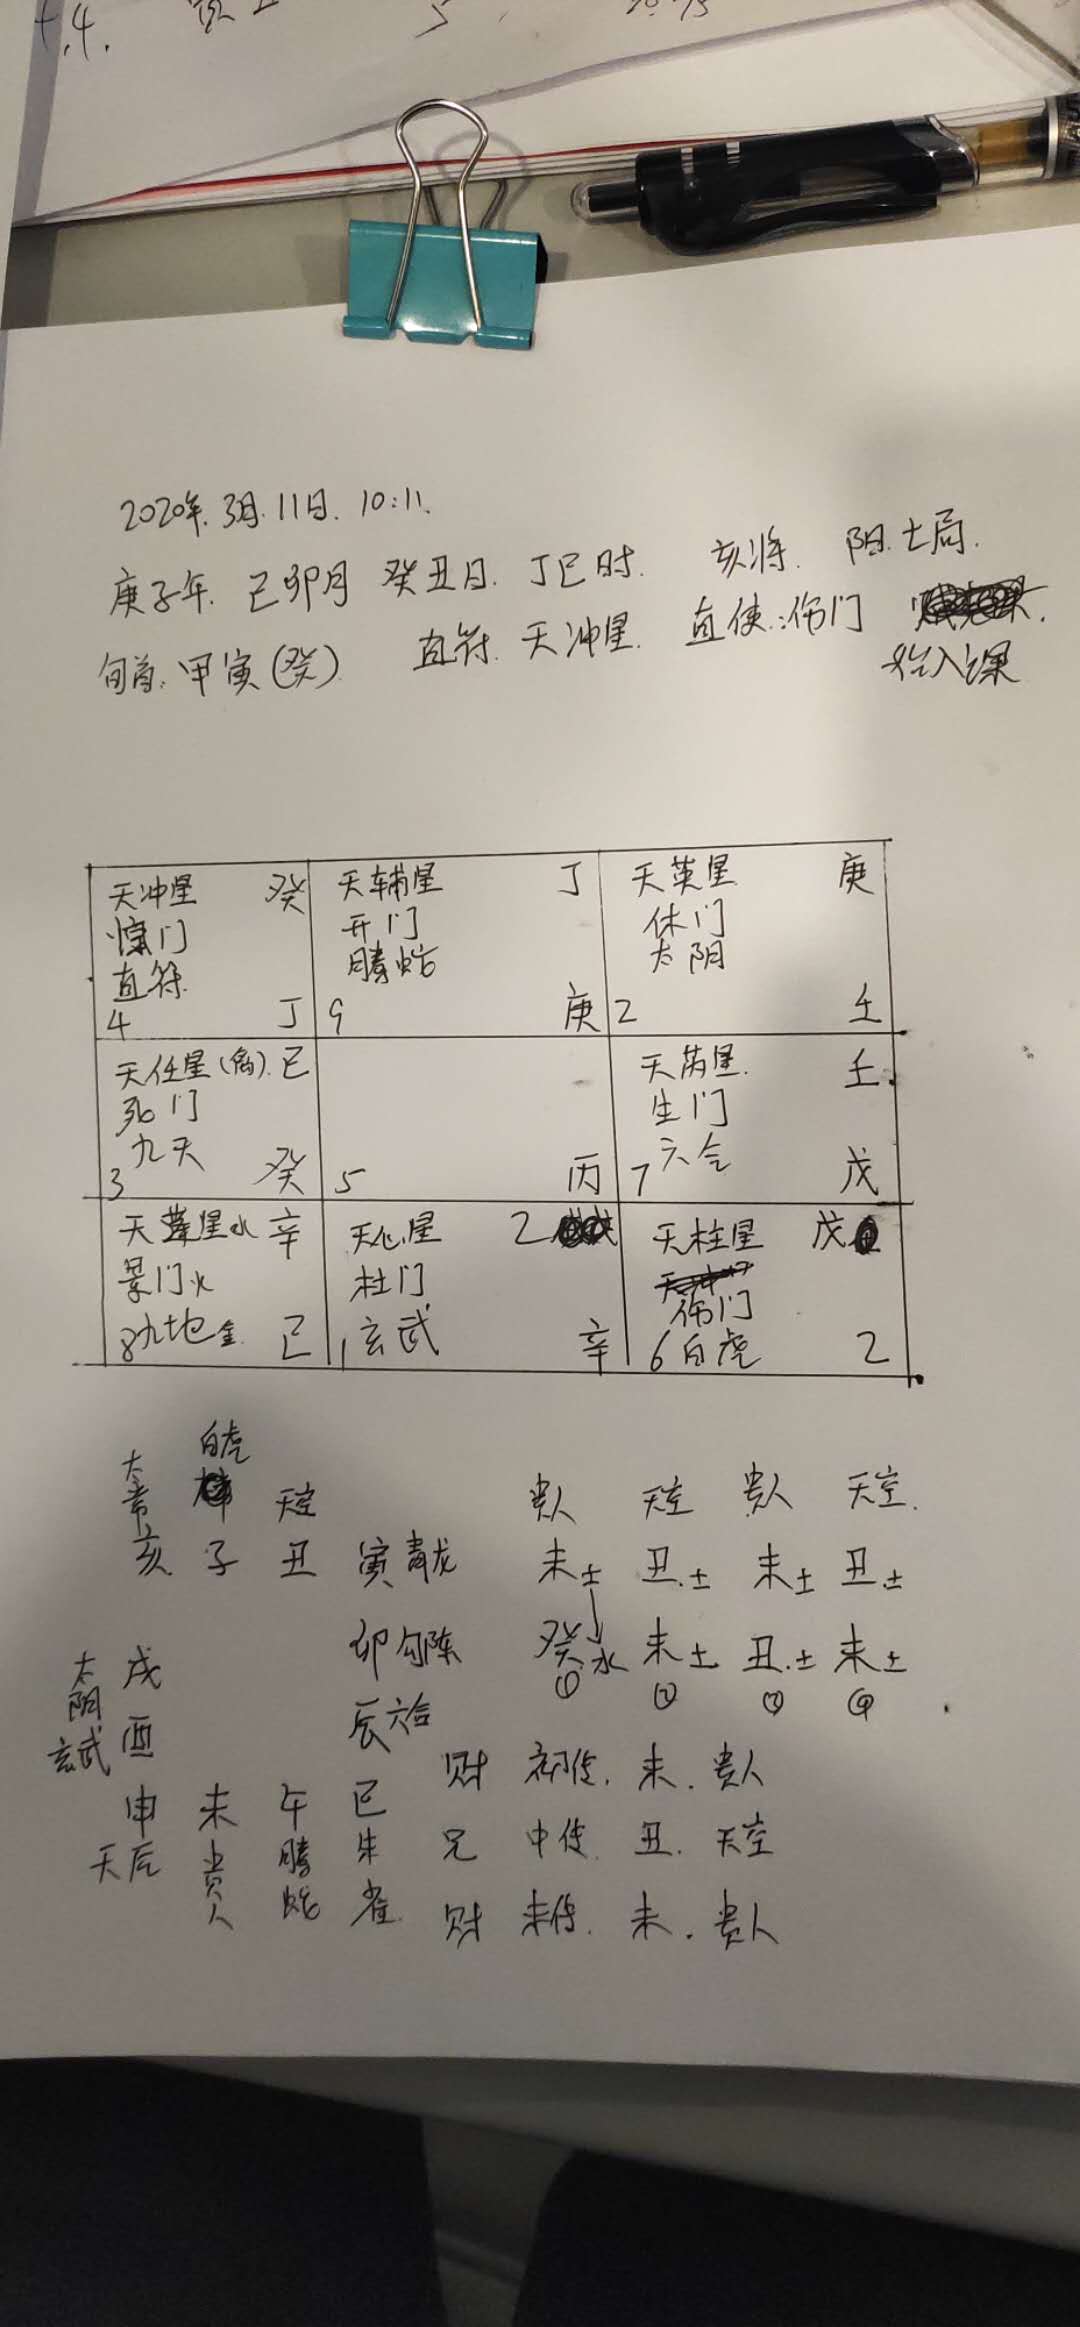 2020年.3月.11日.10:11.
庚子年.己卯月 癸丑日.丁巳时. 亥将. 阳.七局.
旬首.甲寅(癸) 直符.天冲星. 直使:伤门
始入课
天冲星 癸 天辅星 丁 天英星 庚
惊门 开门 休门
直符 腾蛇 太阴
4 丁 9 庚 2 壬
天任星(禽).己 天芮星 壬
死门 生门
九天 六合
3 癸 5 丙 7 戊
天蓬星水 辛 天心星 乙 天柱星 戊
景门火 杜门 伤门
8九地金 己 1玄武 辛 6白虎 乙
太常 白虎 天空 贵人 天空 贵人 天空.
亥 子 丑 寅青龙 未土 丑.土 未土 丑.土
太阴 戌 卯勾陈 癸水 未土 丑.土 未土
① ② ③ ④
玄武 酉 辰六合
财 初传.未.贵人
申 未 午 巳
天后 贵人 腾蛇 朱雀
兄 中传 丑.天空
财 末传.未.贵人